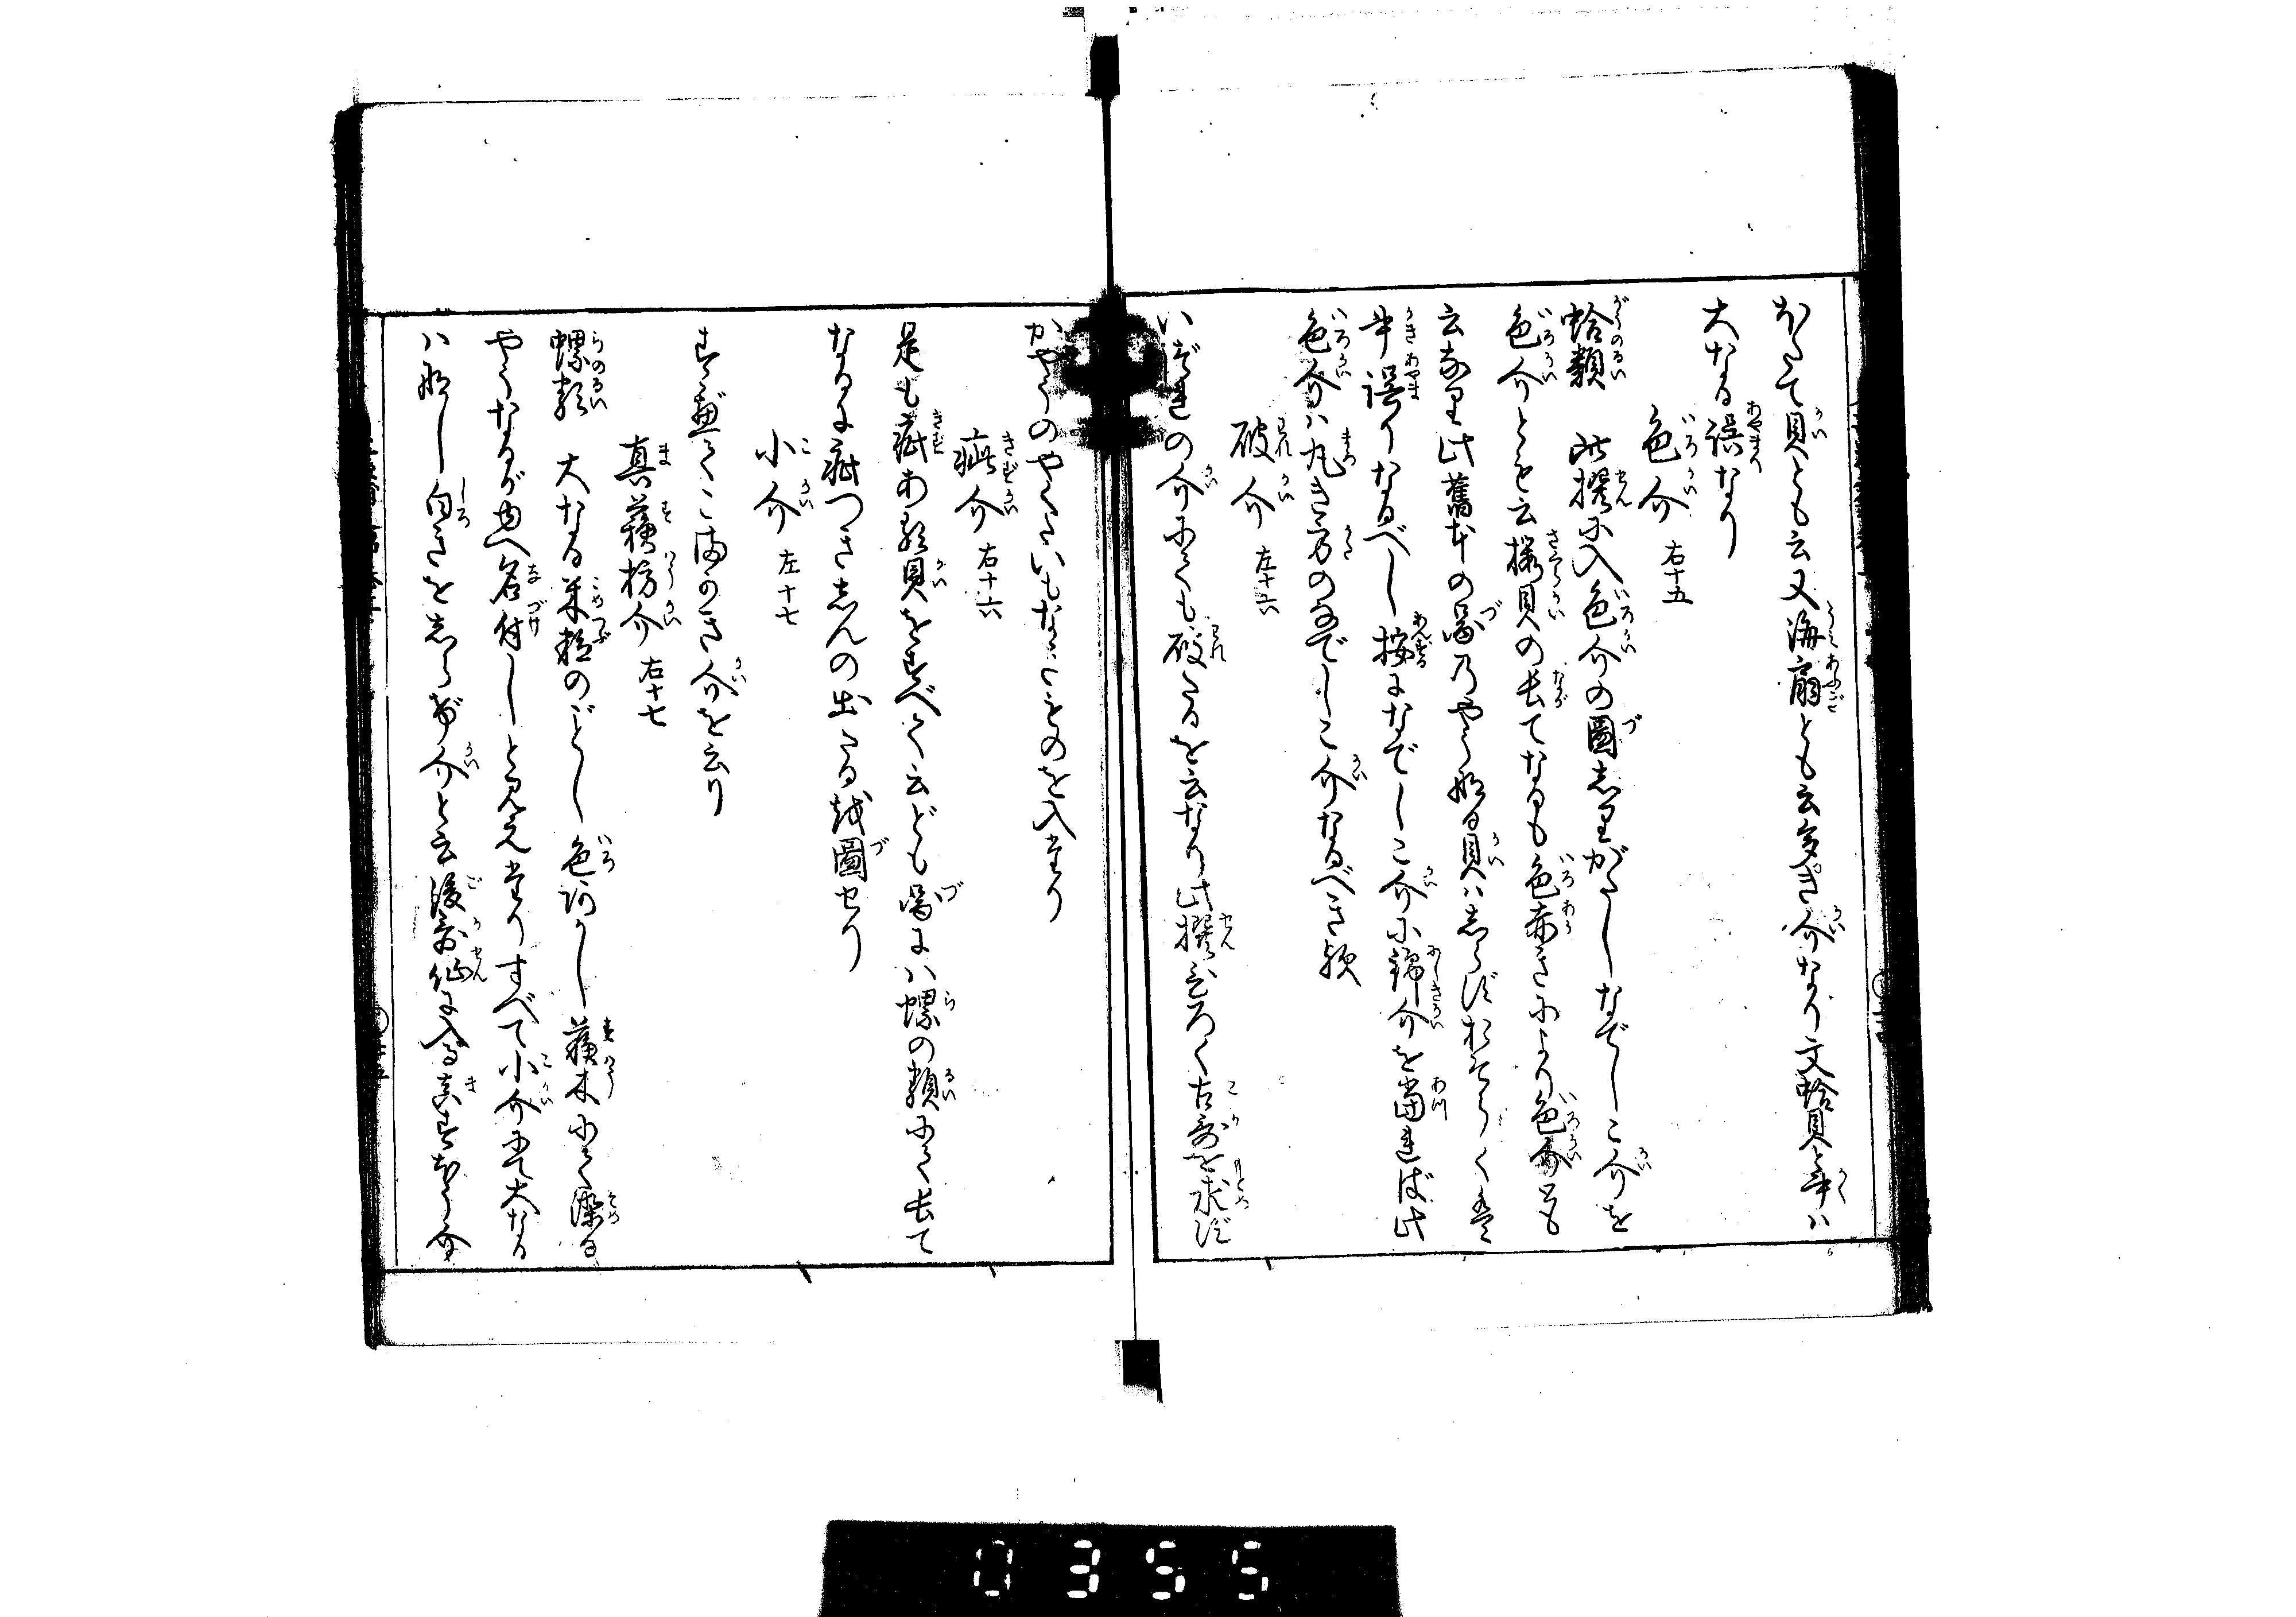 ほたて貝とも云又海扇とも云多き介なり文蛤貝と書ハ
大なる誤なり
色介 右十五
蛤類 此撰に入色介の圖志りがたしなでしこ介を
色介とも云桜貝の長てなるも色赤きにより色介とも
云なり此舊本の圖乃やう成る貝ハ志らずおそらくは
書誤りなるべし按になでしこ介に錦介を當れば此
色介ハ丸き方のなでしこ介なるべき歟
破介 左十六
いづれの介にても破たるを云なり此撰ひろく古哥を求ず
かやうのやくたいもなきものを入たり
疵介 右十六
是も疵ある貝をすべて云ども圖にハ螺の類にて長て
なるに疵つき志んの出たる越圖せり
小介 左十七
すべてこまかき介を云り
真蘓枋介 右十七
螺類 大なる米粒のごとし色何かし蘓木にて染る
やうなるがゆへ名付しと見えたりすべて小介にて大なる
ハ成し白きを志らぎ介と云後哥仙に入るますほう介
0355